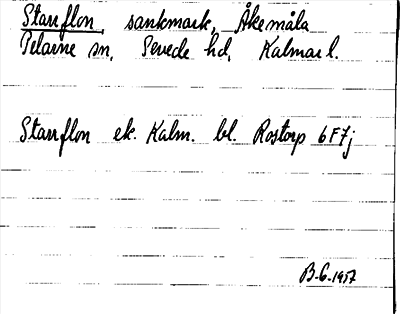 Starrflon, sankmark, Åkemåla
Pelarne sn, Sevede hd, Kalmar l.
Starrflon ek. Kalm. bl. Rostorp 6F7j
B.G. 1957